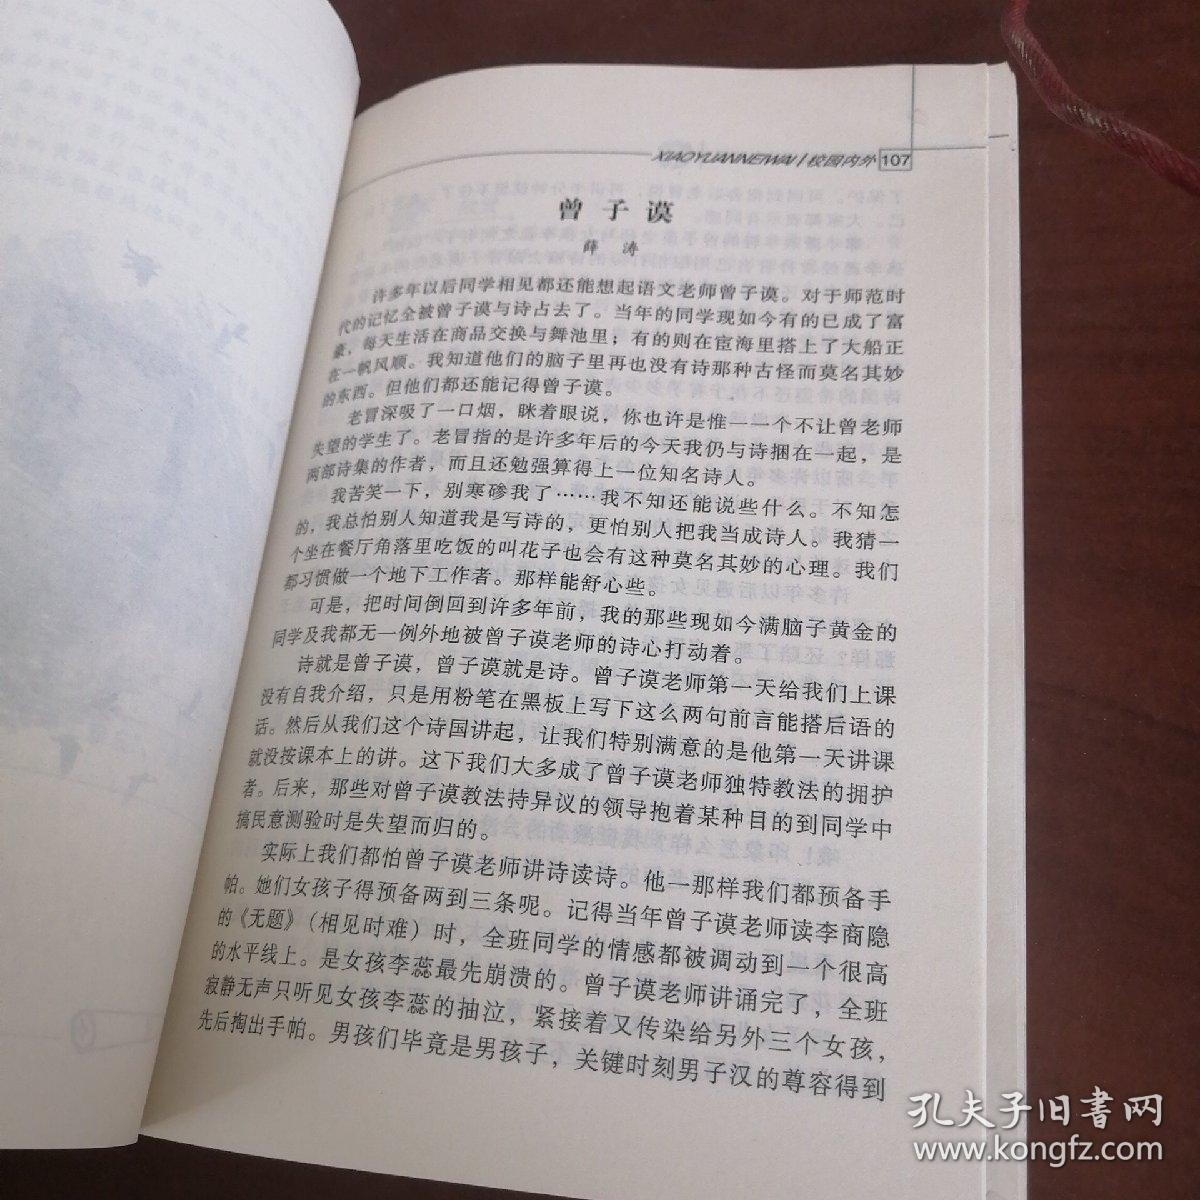 XIAOYUANNEIWAI / 校园内外 107
曾子谟
薛 涛
许多年以后同学相见都还能想起语文老师曾子谟。对于师范时
代的记忆全被曾子谟与诗占去了。当年的同学现如今有的已成了富
豪，每天生活在商品交换与舞池里；有的则在宦海里搭上了大船正
在一帆风顺。我知道他们的脑子里再也没有诗那种古怪而莫名其妙
的东西。但他们都还能记得曾子谟。
老冒深吸了一口烟，眯着眼说，你也许是惟一一个不让曾老师
失望的学生了。老冒指的是许多年后的今天我仍与诗捆在一起，是
两部诗集的作者，而且还勉强算得上一位知名诗人。
我苦笑一下，别寒碜我了……我不知还能说些什么。不知怎
的，我总怕别人知道我是写诗的，更怕别人把我当成诗人。我猜一
个坐在餐厅角落里吃饭的叫花子也会有这种莫名其妙的心理。我们
都习惯做一个地下工作者。那样能舒心些。
可是，把时间倒回到许多年前，我的那些现如今满脑子黄金的
同学及我都无一例外地被曾子谟老师的诗心打动着。
诗就是曾子谟，曾子谟就是诗。曾子谟老师第一天给我们上课
没有自我介绍，只是用粉笔在黑板上写下这么两句前言能搭后语的
话。然后从我们这个诗国讲起，让我们特别满意的是他第一天讲课
就没按课本上的讲。这下我们大多成了曾子谟老师独特教法的拥护
者。后来，那些对曾子谟教法持异议的领导抱着某种目的到同学中
搞民意测验时是失望而归的。
实际上我们都怕曾子谟老师讲诗读诗。他一那样我们都预备手
帕。她们女孩子得预备两到三条呢。记得当年曾子谟老师读李商隐
的《无题》（相见时难）时，全班同学的情感都被调动到一个很高
的水平线上。是女孩李蕊最先崩溃的。曾子谟老师讲诵完了，全班
寂静无声只听见女孩李蕊的抽泣，紧接着又传染给另外三个女孩，
先后掏出手帕。男孩们毕竟是男孩子，关键时刻男子汉的尊容得到
孔夫子旧书网
www.kongfz.com